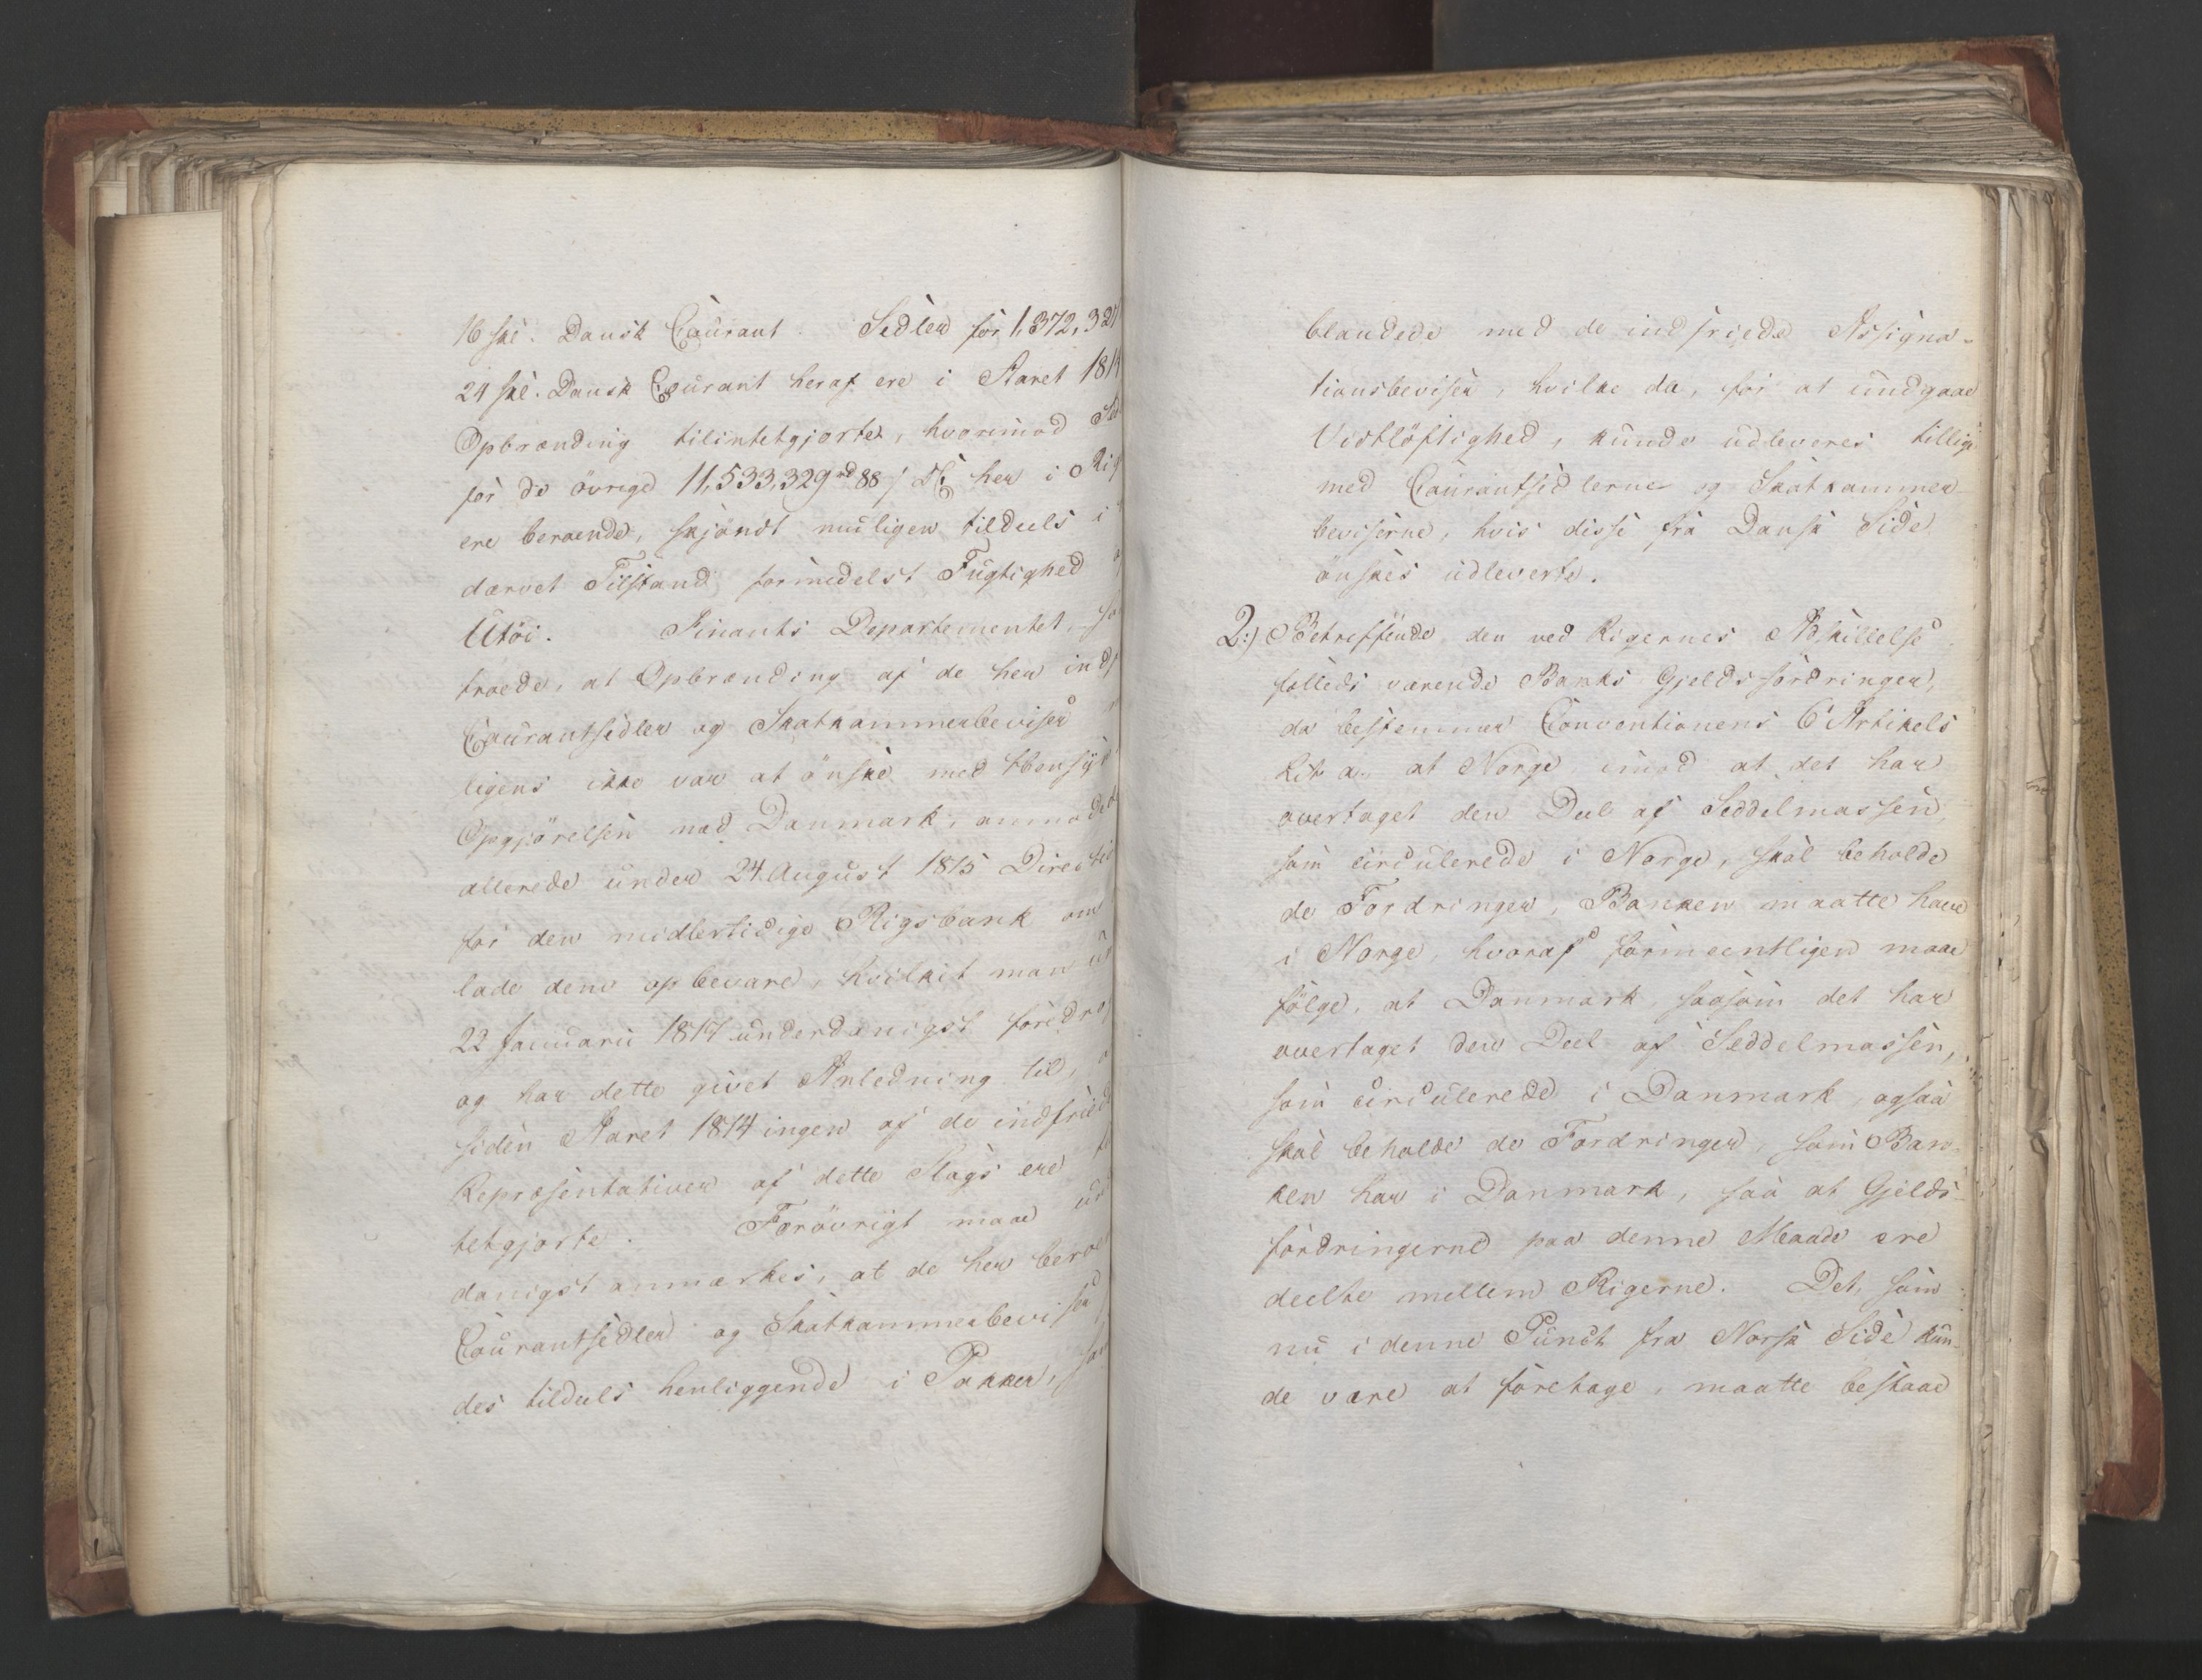 16 ski. Dansk Courant. Sedler for 1,372,32
24 ski. Dansk Courant heraf ere i Aaret 181
Opbrænding tilintetgjorte, hvorimod
for de övrige 11,533,329 rd 88 s DC her i Rig
ere beroende, skjöndt muligen tildeels i
dærvet Tilstand formedelst Fugtighed
Utöi. Finants Departementet,
troede, at Opbrænding af de her indf
Courantsedler og Skatkammerbeviser
ligens ikke var at önske med Hensÿn
Opgjörelsen med Danmark, anmodede
allerede under 24 August 1815 Directio
for den midlertidige Rigsbank om
lade dem opbevare, hvilket man un
22 Januarii 1817 underdanigst foredro
og har dette givet Anledning til,
siden Aaret 1814 ingen af de indfriede
Repræsentativer af dette Slags ere
tetgjorte. Forövrigt maae
danigst anmærkes, at de her beroe
Courantsedler og Skatkammerbeviser
des tildeels henliggende i Pakker,
blandede med de indfriede Assigna-
tionsbeviser, hvilke da, for at undgaae
Vidtlöftighed, kunde udleveres tillige
med Courantsedlerne og Skatkammer-
beviserne, hvis disse fra Dansk Side
önskes udleverte.
2:) Betreffende den ved Rigernes Adskillelse
fælleds værende Banks Gjeldsfordringer,
da bestemmer Conventionens 6 Artikels
Lit a. at Norge imod at det har
overtaget den Deel af Seddelmassen,
som circulerede i Norge, skal beholde
de Fordringer, Banken maatte have
i Norge, hvoraf formeentligen maae
fölge, at Danmark, saasom det har
overtaget den Deel af Seddelmassen,
som circulerede i Danmark, ogsaa
skal beholde de Fordringer, som Ban-
ken har i Danmark, saa at Gjelds-
fordringerne paa denne Maade ere
deelte mellem Rigerne. Det, som
nu i denne Punct fra Norsk Side kun-
de være at foretage, maatte bestaae